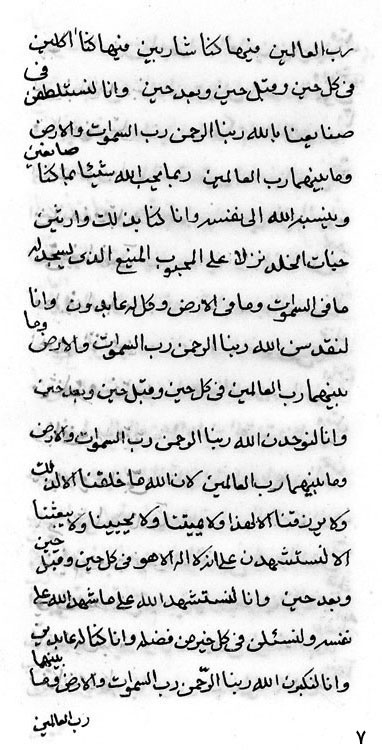 رب العالمين منيها كنا شاربين منيها كنا اكلين
فى كل حين وقبل حين وبعد حين وانا لنستلطفن فى
صنايعنا بالله ربنا الرحمن رب السموات والارض
وما بينهما رب العالمين ربما يحب الله شيئا مما كنا صانعين
وينسبه الله الى نفسه وانا كنا بذلك وارثين
حيات الخلد نزلا على المحبوب المنيع الذى يسجد له
ما فى السموات وما فى الارض وكل له عابدون وانا
لنقدسن الله ربنا الرحمن رب السموات والارض وما
بينهما رب العالمين فى كل حين وقبل حين وبعد حين
وانا لنوحدن الله ربنا الرحمن رب السموات والارض
وما بينهما رب العالمين لان الله ما خلقنا الا لذلك
ولا يرزقنا الا لهذا ولا يميتنا ولا يحيينا ولا يبعثنا
الا لنستشهدن على انه لا اله الا هو فى كل حين وقبل حين
وبعد حين وانا لنستشهد الله على ما شهد الله على
نفسه ولنسئلن فى كل خير من فضله وانا كنا له عابدين
وانا لنكبرن الله ربنا الرحمن رب السموات والارض وما بينهما
رب العالمين
٧